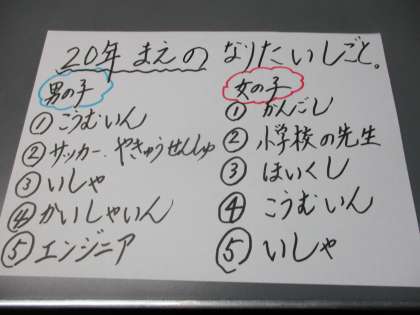 20年まえの なりたいしごと。
男の子
①こうむいん
②サッカー、やきゅうせんしゅ
③いしゃ
④かいしゃいん
⑤エンジニア
女の子
①かんごし
②小学校の先生
③ほいくし
④こうむいん
⑤いしゃ